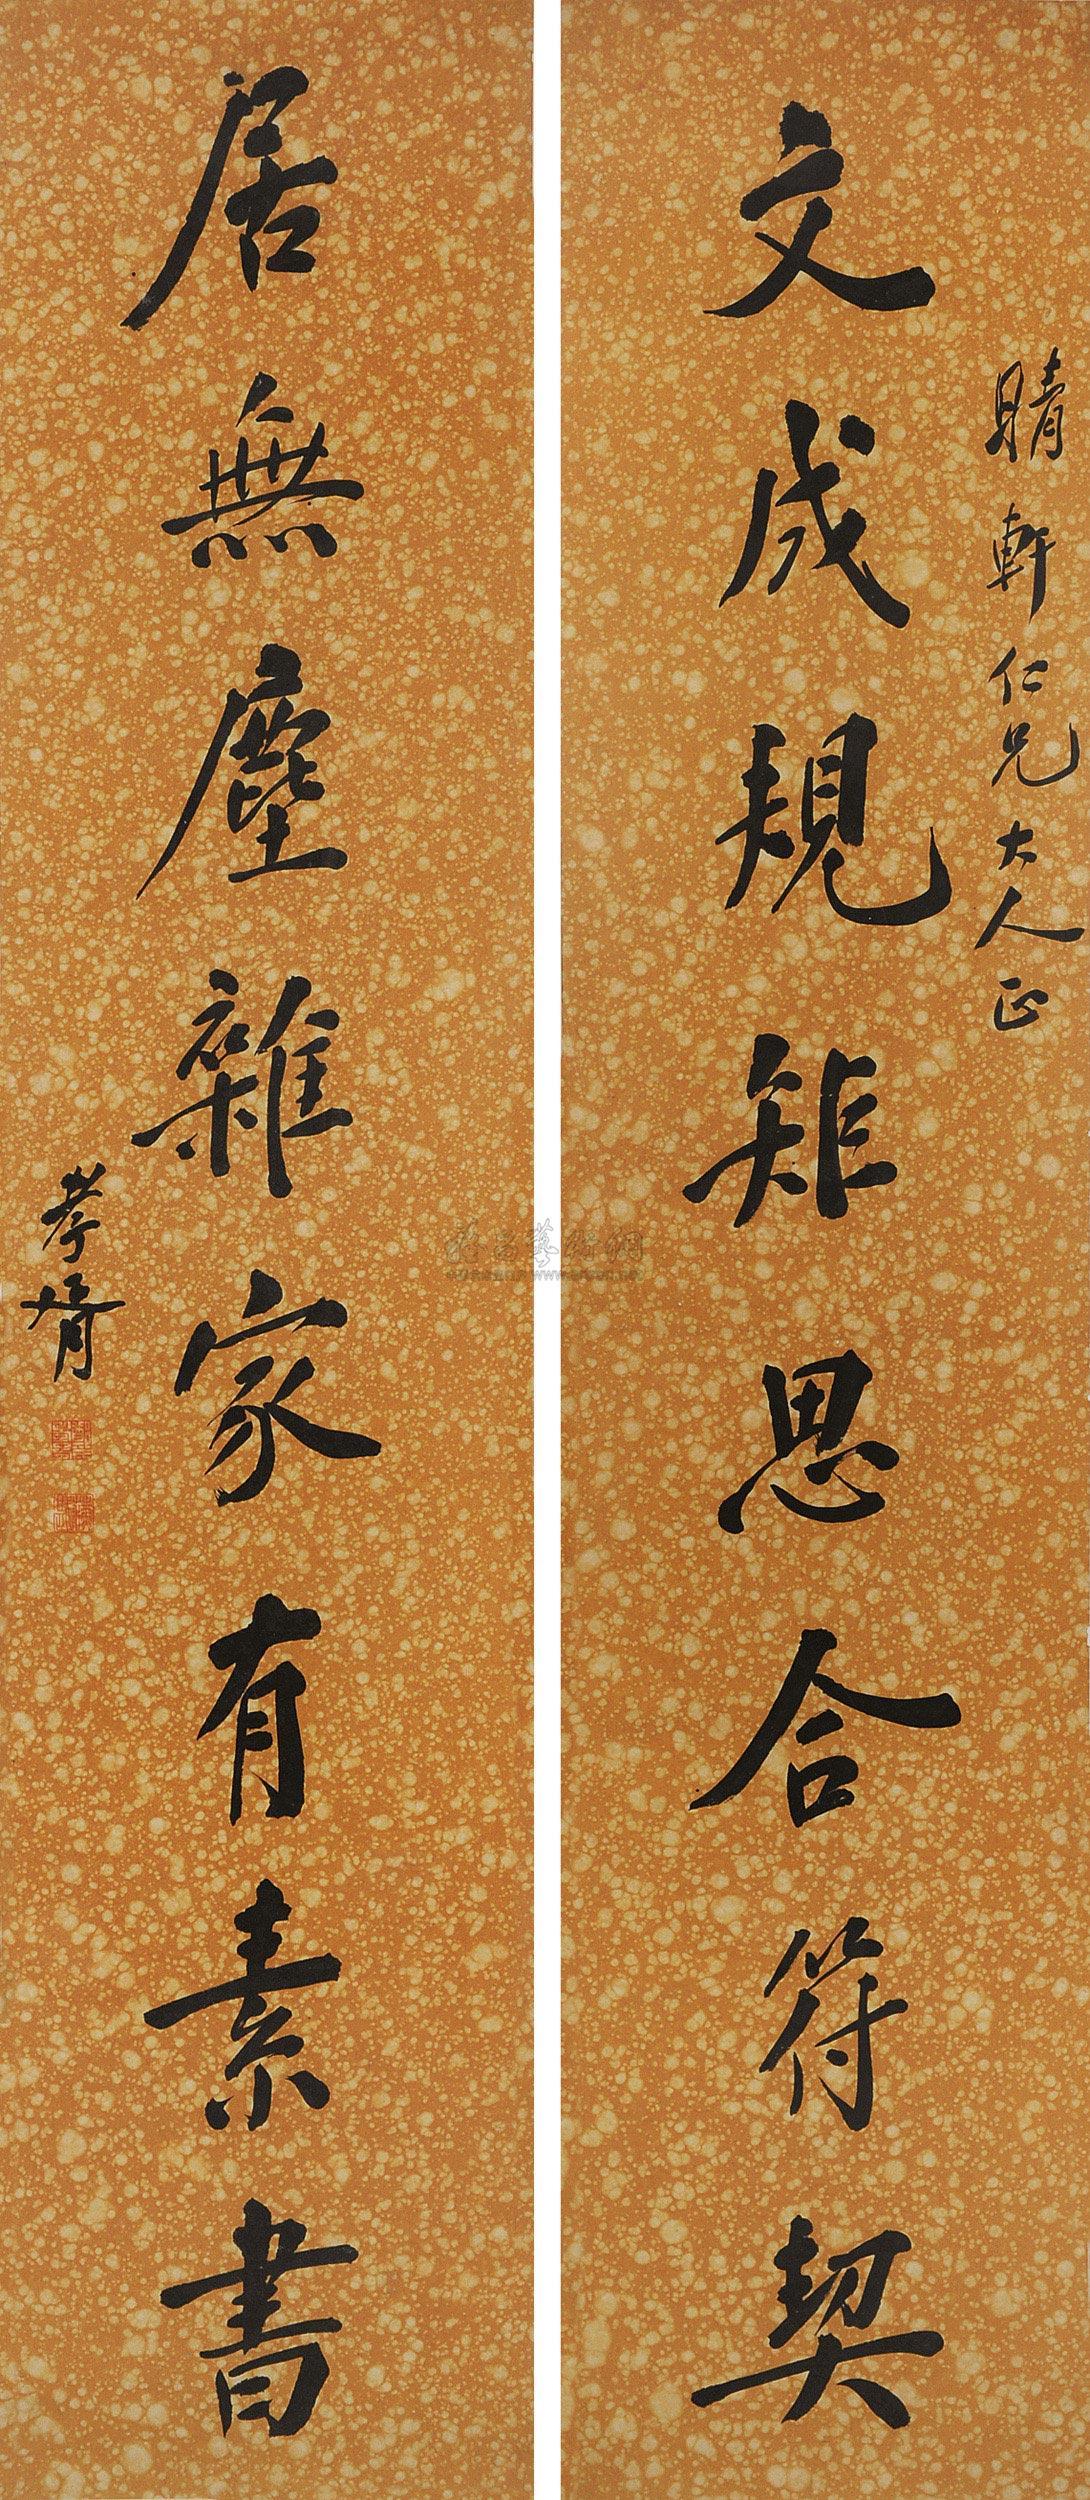 文成規矩思合符契
晴軒仁兄大人正
居無塵雜家有素書
孝胥